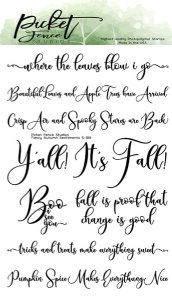 Picket Fence
STUDIOS
Highest Quality Photopolymer Stamps
Made in the USA
where the leaves blow i go
Beautiful Leaves and Apple Trees have Arrived
Crisp Air and Spooky Starrs are Back
Y'all! It's Fall!
Boo
to
see
you
fall is proof that
change is good
Picket Fence Studios
Fancy Autumn Sentiments
tricks and treats make everything sweet
Pumpkin Spice Makes Everything Nice